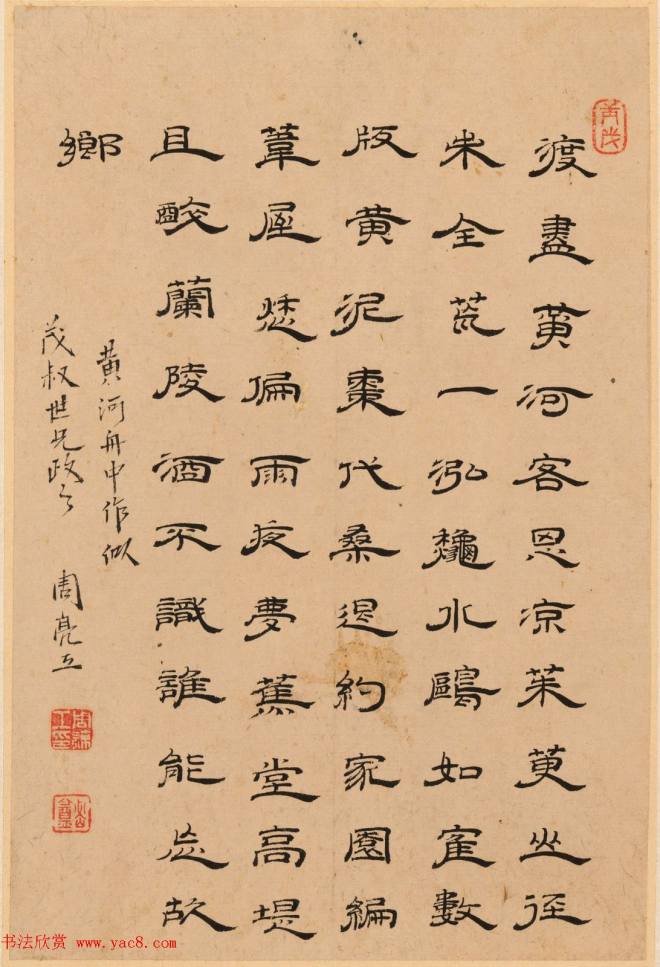 渡盡黃河客思凉茱萸山徑
未全荒一泓龝水鷗如隺數
版黃泥棗代桑退約家園編
葦屋愁偏雨夜夢蕉堂高堤
且醉蘭陵酒不識誰能忘故
鄉
黃河舟中作似
茂叔世兄政之 周亮工
周亮工印
书法欣赏 www.yac8.com